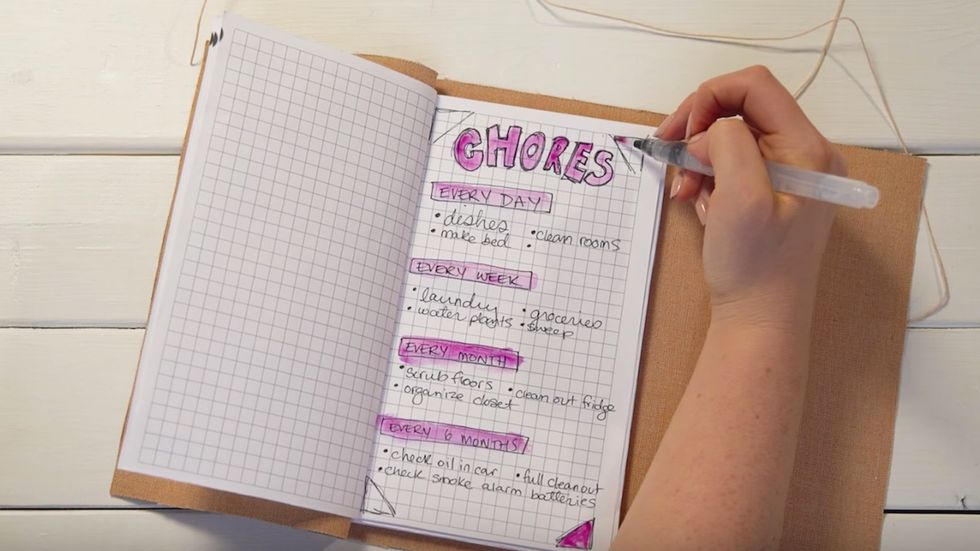 CHORES
EVERY DAY
• dishes
• make bed • clean rooms
•
EVERY WEEK
• laundry • groceries
• water plants • sweep
EVERY MONTH
• scrub floors • clean out fridge
• organize closet
EVERY 6 MONTHS
• check oil in car • full cleanout
• check smoke alarm batteries